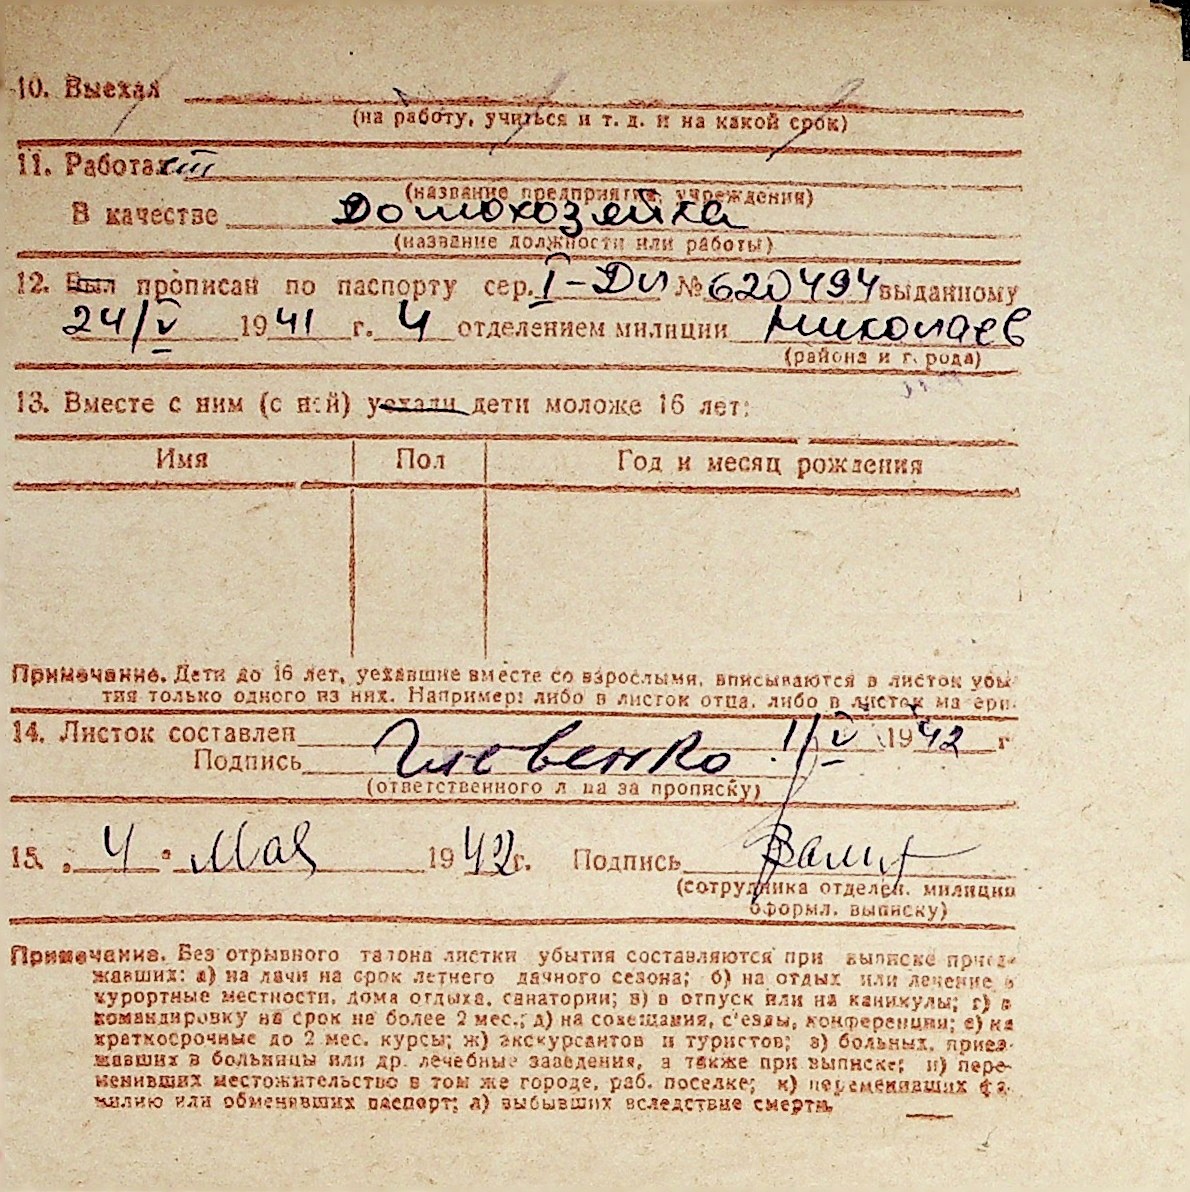 10. Выехал
(на работу, учиться и т. д. и на какой срок)
11. Работает
(название предприятия, учреждения)
В качестве Домохозяйка
(название должности или работы)
12. Был прописан по паспорту сер. I-ДИ № 620494 выданному
24/V 1941 г. 4 отделением милиции Николаев
(района и города)
13. Вместе с ним (с ней) уехали дети моложе 16 лет:
Имя Пол Год и месяц рождения
Примечание. Дети до 16 лет, уехавшие вместе со взрослыми, вписываются в листок убы-
тия только одного из них. Например: либо в листок отца, либо в листок матери.
14. Листок составлен 1/V 1942 г
Подпись
(ответственного лица за прописку)
15. „4" Мая 1942 г. Подпись
(сотрудника отделен. милиции
оформл. выписку)
Примечание. Без отрывного талона листки убытия составляются при выписке приез-
жавших: а) на дачи на срок летнего дачного сезона; б) на отдых или лечение в
курортные местности, дома отдыха, санатории; в) в отпуск или на каникулы; г) в
командировку на срок не более 2 мес.; д) на совещания, с'езды, конференции; е) на
краткосрочные до 2 мес. курсы; ж) экскурсантов и туристов; з) больных, приез-
жавших в больницы или др. лечебные заведения, а также при выписке; и) пере-
менивших местожительство в том же городе, раб. поселке; к) переменивших фа-
милию или обменявших паспорт; л) выбывших вследствие смерти.